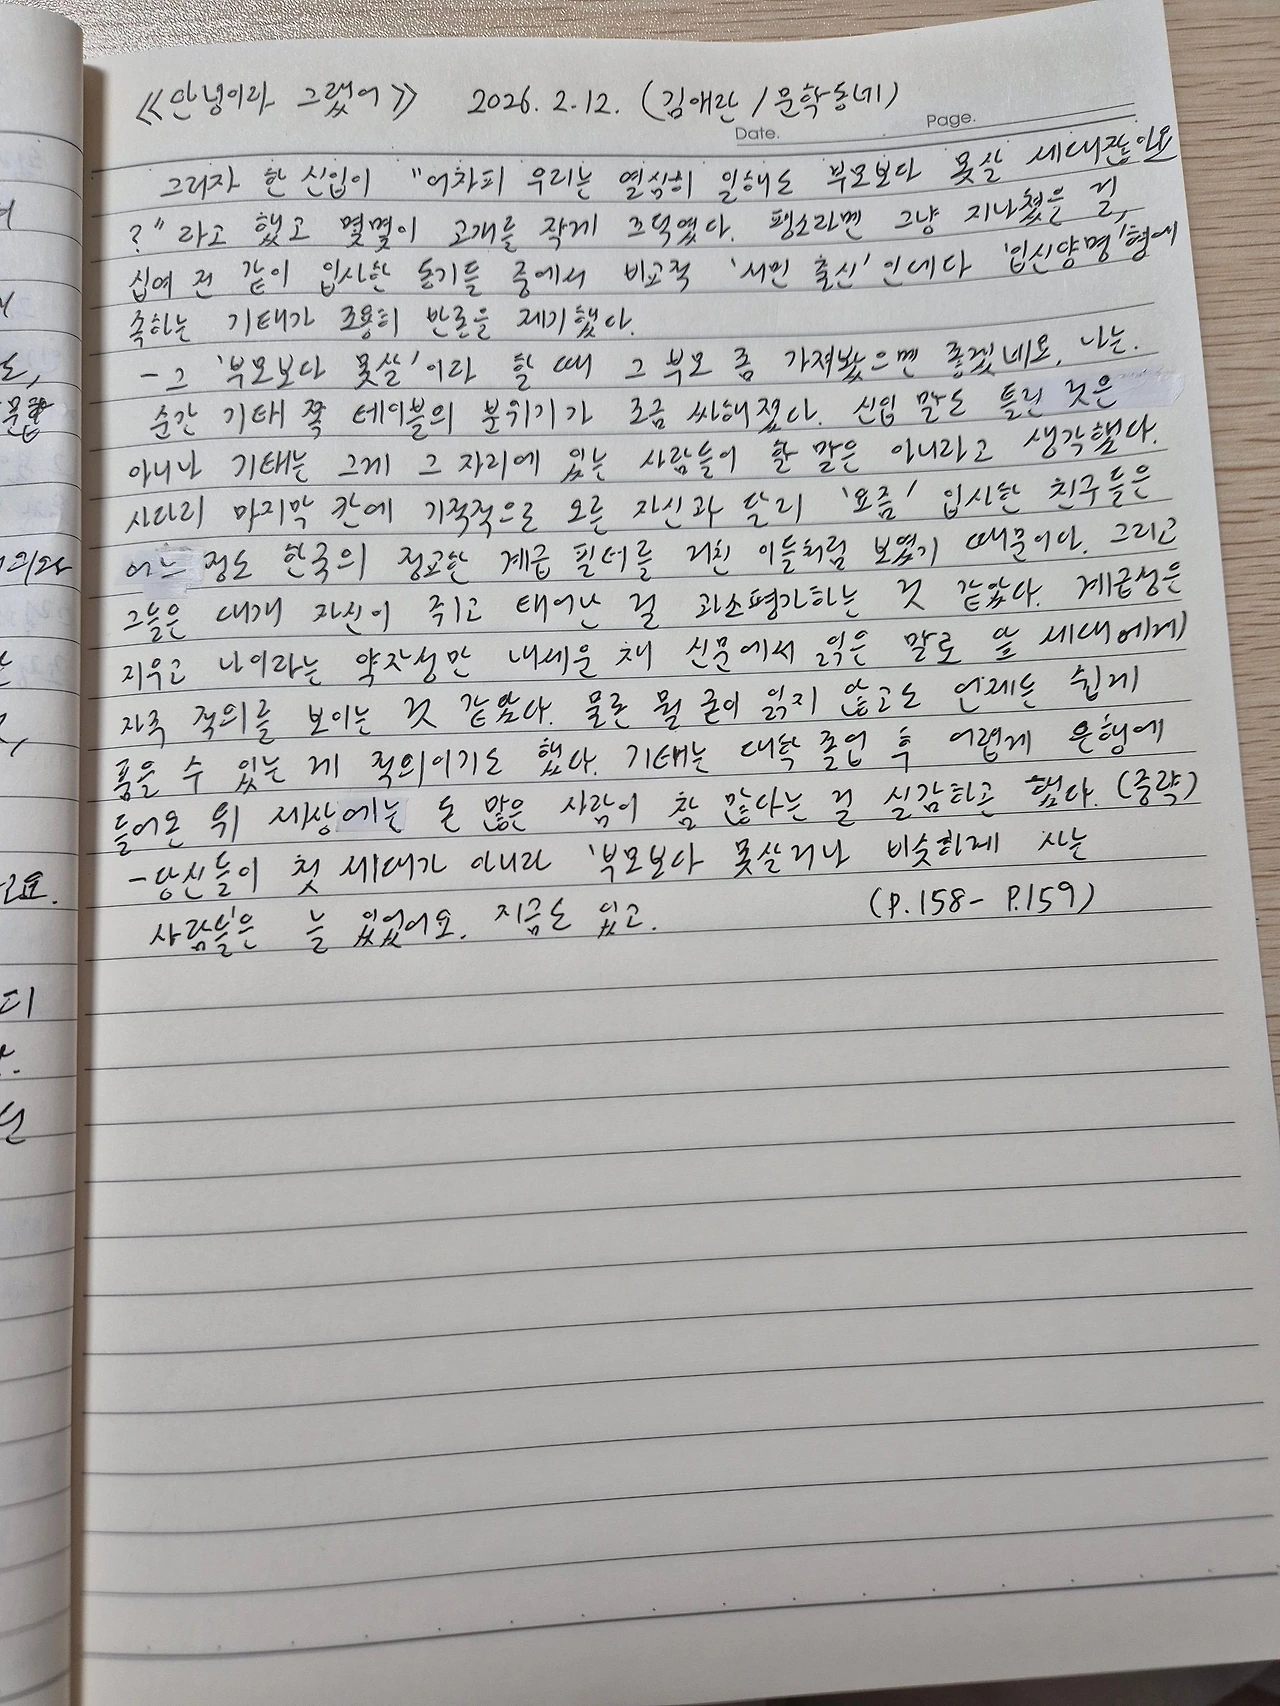 《안녕이라 그랬어》 2026. 2. 12. (김애란 / 문학동네)
Date. Page.
그러자 한 신입이 "어차피 우리는 열심히 일해도 부모보다 못살 세대잖아요
?" 라고 했고 몇몇이 고개를 작게 끄덕였다. 평소라면 그냥 지나쳤을 걸,
십여 년 전 같이 입사한 동기들 중에서 비교적 '서민 출신'인데다 '입신양명'형에
속하는 기태가 조용히 반론을 제기했다.
- 그 '부모보다 못살'이라 할 때 그 부모 좀 가져봤으면 좋겠네요, 나는.
순간 기태 쪽 테이블의 분위기가 조금 싸해졌다. 신입 말도 틀린 것은
아니나 기태는 그게 그 자리에 있는 사람들이 할 말은 아니라고 생각했다.
사다리 마지막 칸에 기적적으로 오른 자신과 달리 '요즘' 입사한 친구들은
어느 정도 한국의 정교한 계급 필터를 거친 이들처럼 보였기 때문이다. 그리고
그들은 대개 자신이 쥐고 태어난 걸 과소평가하는 것 같았다. 계급성은
지우고 나이라는 약자성만 내세운 채 신문에서 읽은 말로 앞 세대에게
자주 적의를 보이는 것 같았다. 물론 뭘 굳이 읽지 않고도 언제든 쉽게
품을 수 있는 게 적의이기도 했다. 기태는 대학 졸업 후 어렵게 은행에
들어온 뒤 세상에는 돈 많은 사람이 참 많다는 걸 실감하곤 했다. (중략)
- 당신들이 첫 세대가 아니라 '부모보다 못살거나 비슷하게 사는
사람들'은 늘 있었어요. 지금도 있고. (P.158- P.159)